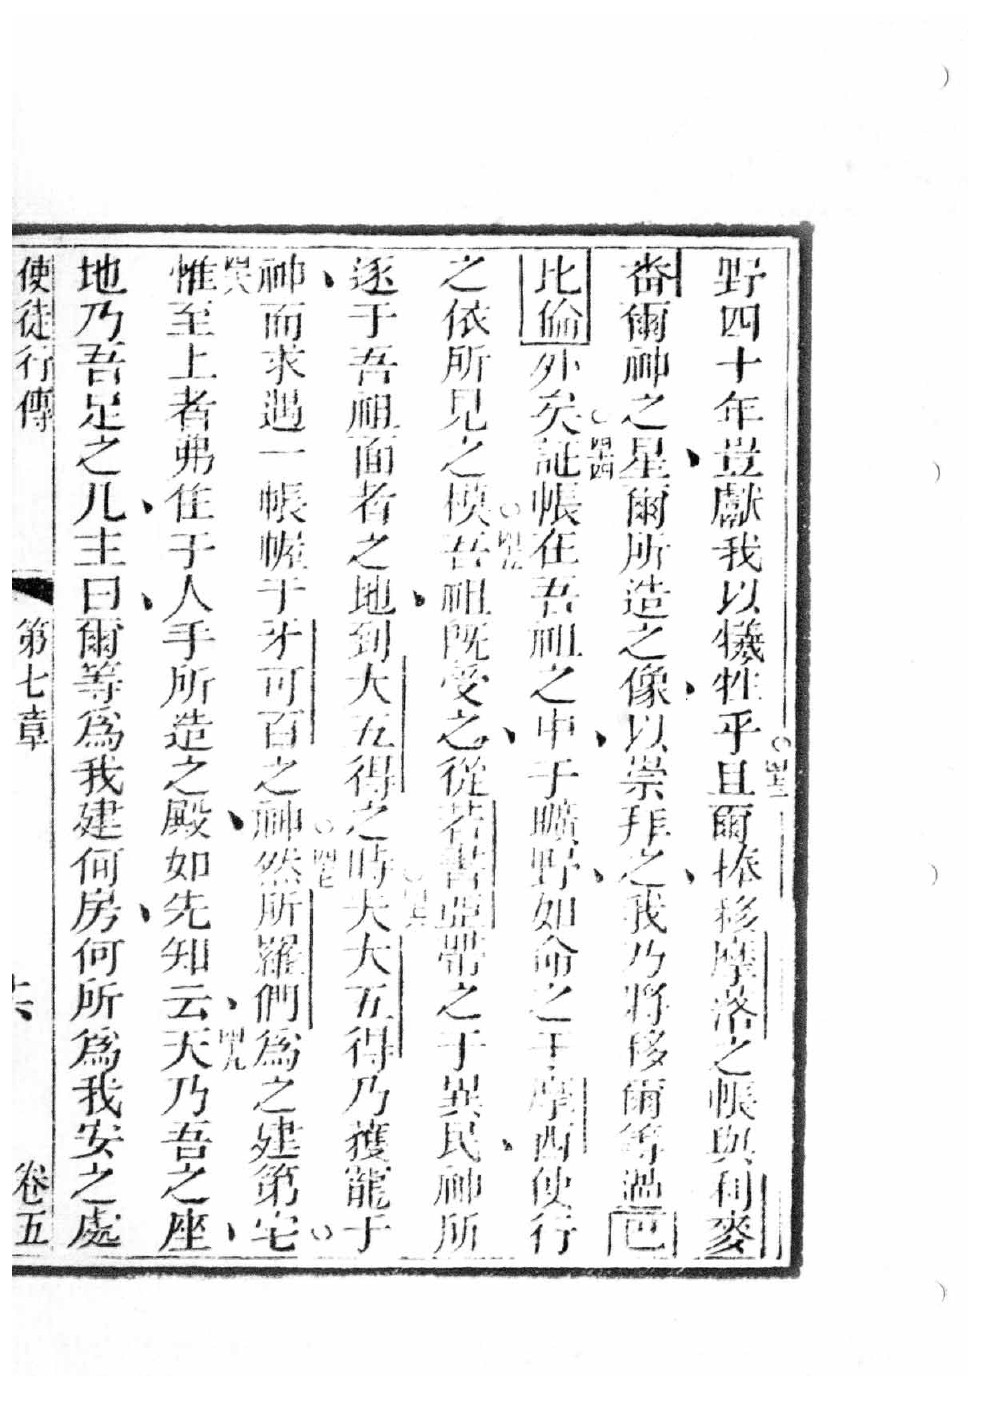 野四十年豈獻我以犧牲乎○四三且爾捧移摩落之帳與利麥
畨爾神之星爾所造之像以崇拜之我乃將移爾等過巴
比倫外矣○四四証帳在吾祖之中于曠野如命之于摩西使行
之依所見之模○四五吾祖既受之從若書亞帶之于異民神所
逐于吾祖面者之地到大五得之時○四六夫大五得乃獲寵于
神而求遇一帳幄于牙可百之神○四七然所羅們為之建第宅○
四八惟至上者弗住于人手所造之殿如先知云○四九天乃吾之座
地乃吾足之几主曰爾等為我建何房何所為我安之處
使徒行傳 第七章 十六 卷五